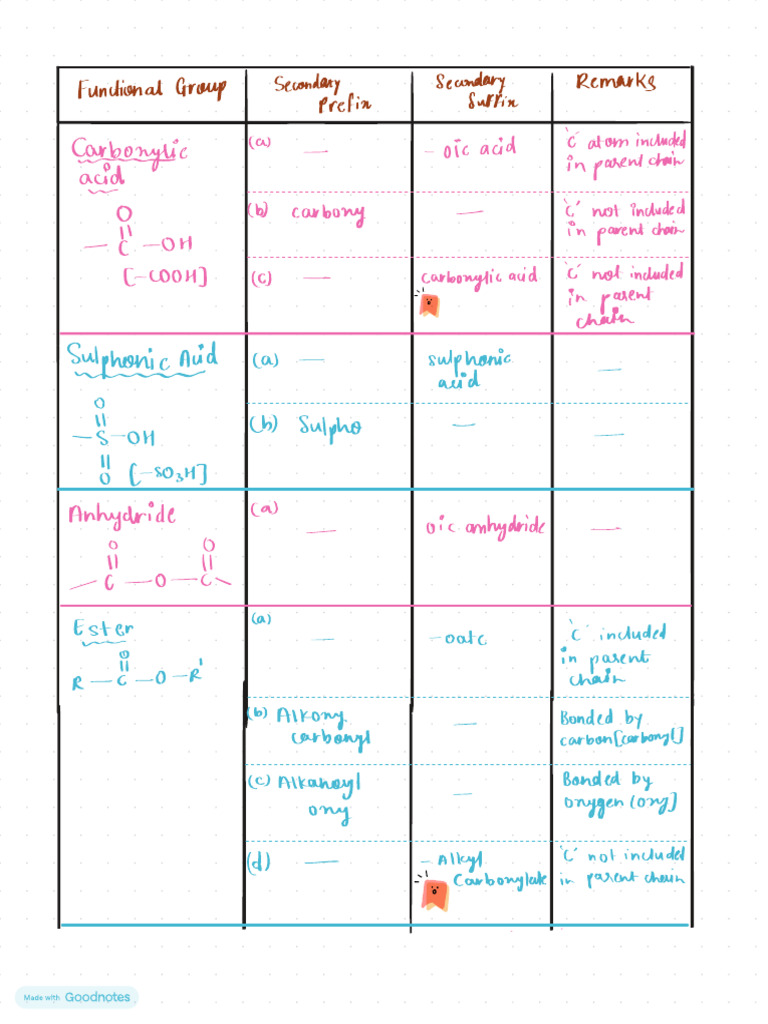 Functional Group
Secondary
Prefix
Secondary
Suffix
Remarks
Carboxylic
acid
O
— C —OH
[-COOH]
(a) —
- oic acid
'C' atom included
in parent chain
(b) carboxy
—
'C' not included
in parent chain
(c) —
carboxylic acid
'C' not included
in parent
chain
Sulphonic Acid
O
—S—OH
O [-SO3H]
(a) —
sulphonic
acid
—
(b) Sulpho
—
—
Anhydride
O O
C —O— C
(a)
—
oic anhydride
—
Ester
O
R —C—O—R'
(a)
—
-oate
'C' included
in parent
chain
(b) Alkoxy
carbonyl
—
Bonded by
carbon[carbonyl]
(c) Alkanoyl
oxy
—
Bonded by
oxygen (oxy]
(d) —
- Alkyl
Carboxylate
'C' not included
in parent chain
Made with Goodnotes